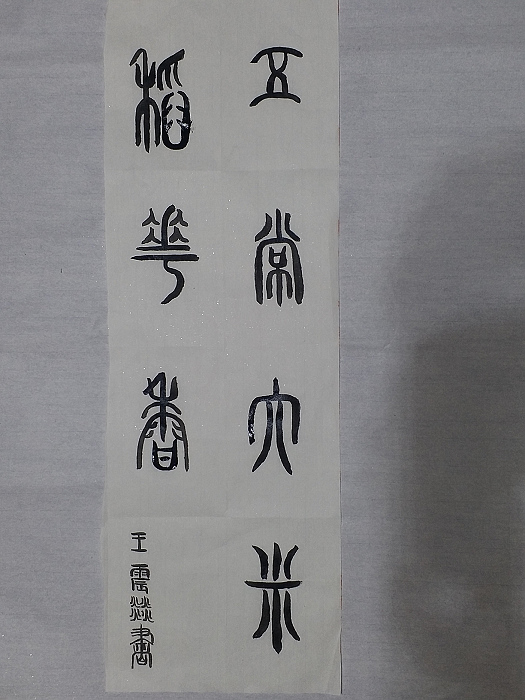 五常大米
稻花香
王震燚書